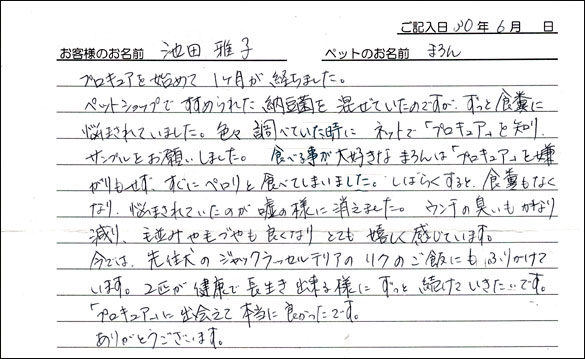 ご記入日 30年 6月 日
お客様のお名前 池田 雅子 ペットのお名前 まろん
プロキュアを始めて 1ヶ月が 経ちました。
ペットショップで すすめられた 納豆菌を 混ぜていたのですが、ずっと 食糞に
悩まされていました。色々 調べていた時に ネットで「プロキュア」を 知り、
サンプルをお願いしました。 食べる事が大好きな まろんは「プロキュア」を嫌
がりもせず、すぐにペロリと 食べてしまいました。しばらくすると、食糞もなく
なり、悩まされていたのが 嘘の様に 消えました。 ウンチの臭いも かなり
減り、毛並みやもづやも 良くなり とても 嬉しく 感じています。
今では、先住犬の ジャックラッセルテリアの リクの ご飯にも ふりかけて
います。2匹が 健康で 長生き 出来る様に ずっと 続けていきたいです。
「プロキュア」に 出会えて 本当に 良かったです。
ありがとうございます。